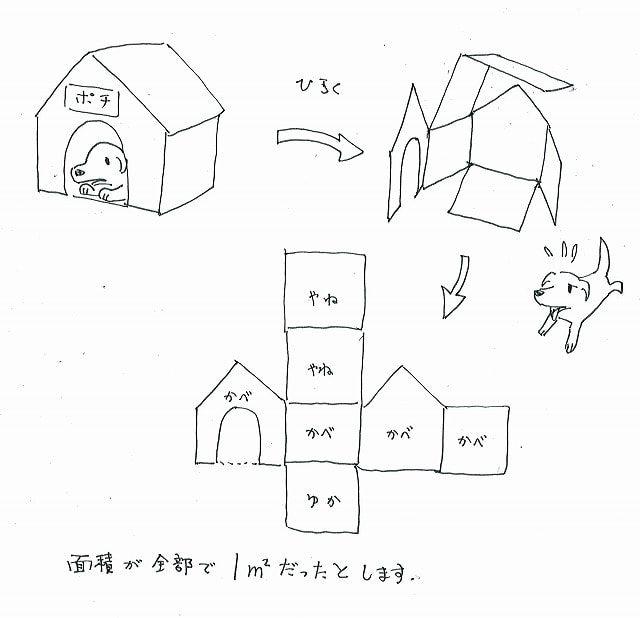 ポチ
ひらく
やね
やね
かべ
かべ
かべ
かべ
ゆか
面積が全部で1m²だったとします.